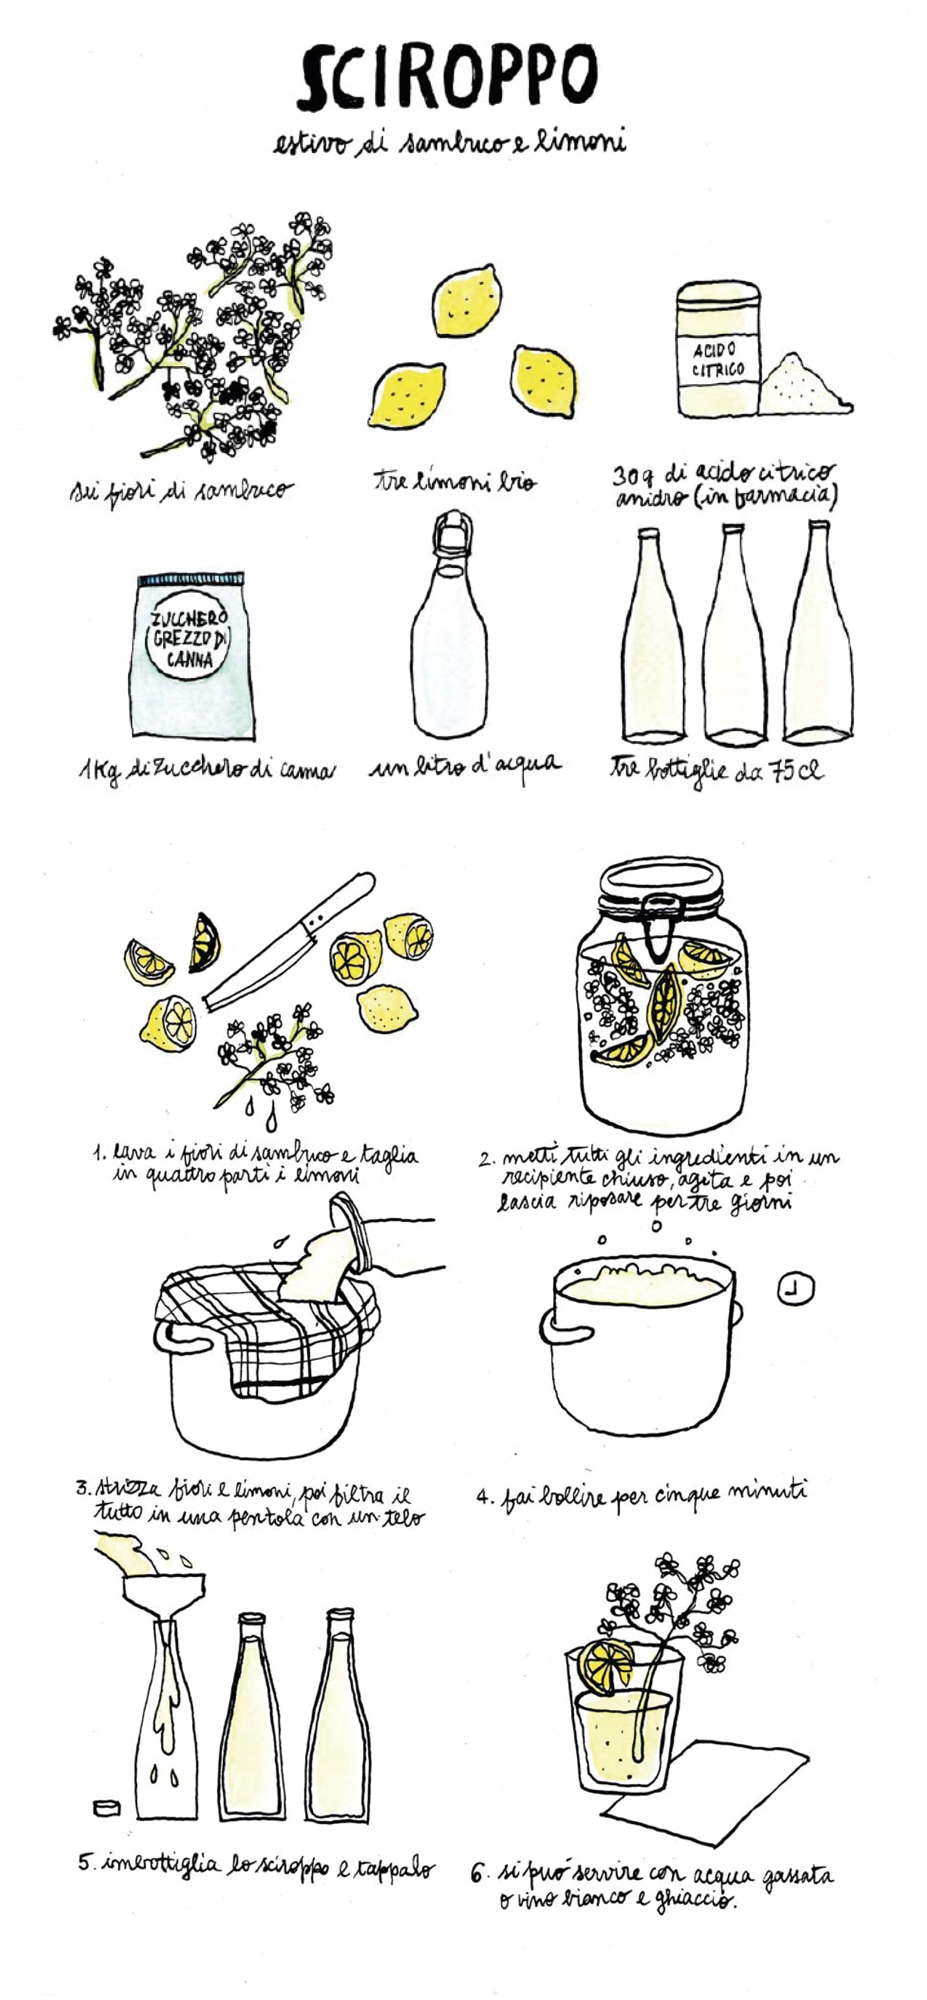 SCIROPPO
estivo di sambuco e limoni
sei fiori di sambuco
tre limoni bio
ACIDO
CITRICO
30g di acido citrico
anidro (in farmacia)
ZUCCHERO
GREZZO DI
CANNA
1Kg di zucchero di canna
un litro d'acqua
tre bottiglie da 75 cl
1. lava i fiori di sambuco e taglia
in quattro parti i limoni
2. metti tutti gli ingredienti in un
recipiente chiuso, agita e poi
lascia riposare per tre giorni
3. strizza fiori e limoni, poi filtra il
tutto in una pentola con un telo
4. fai bollire per cinque minuti
5. imbottiglia lo sciroppo e tappalo
6. si può servire con acqua gassata
o vino bianco e ghiaccio.